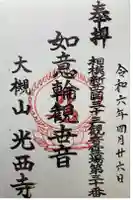 奉拝
令和六年四月廿六日
相模新西国三十三観音霊場第三十番
如意輪観世音
大槻山 光西寺